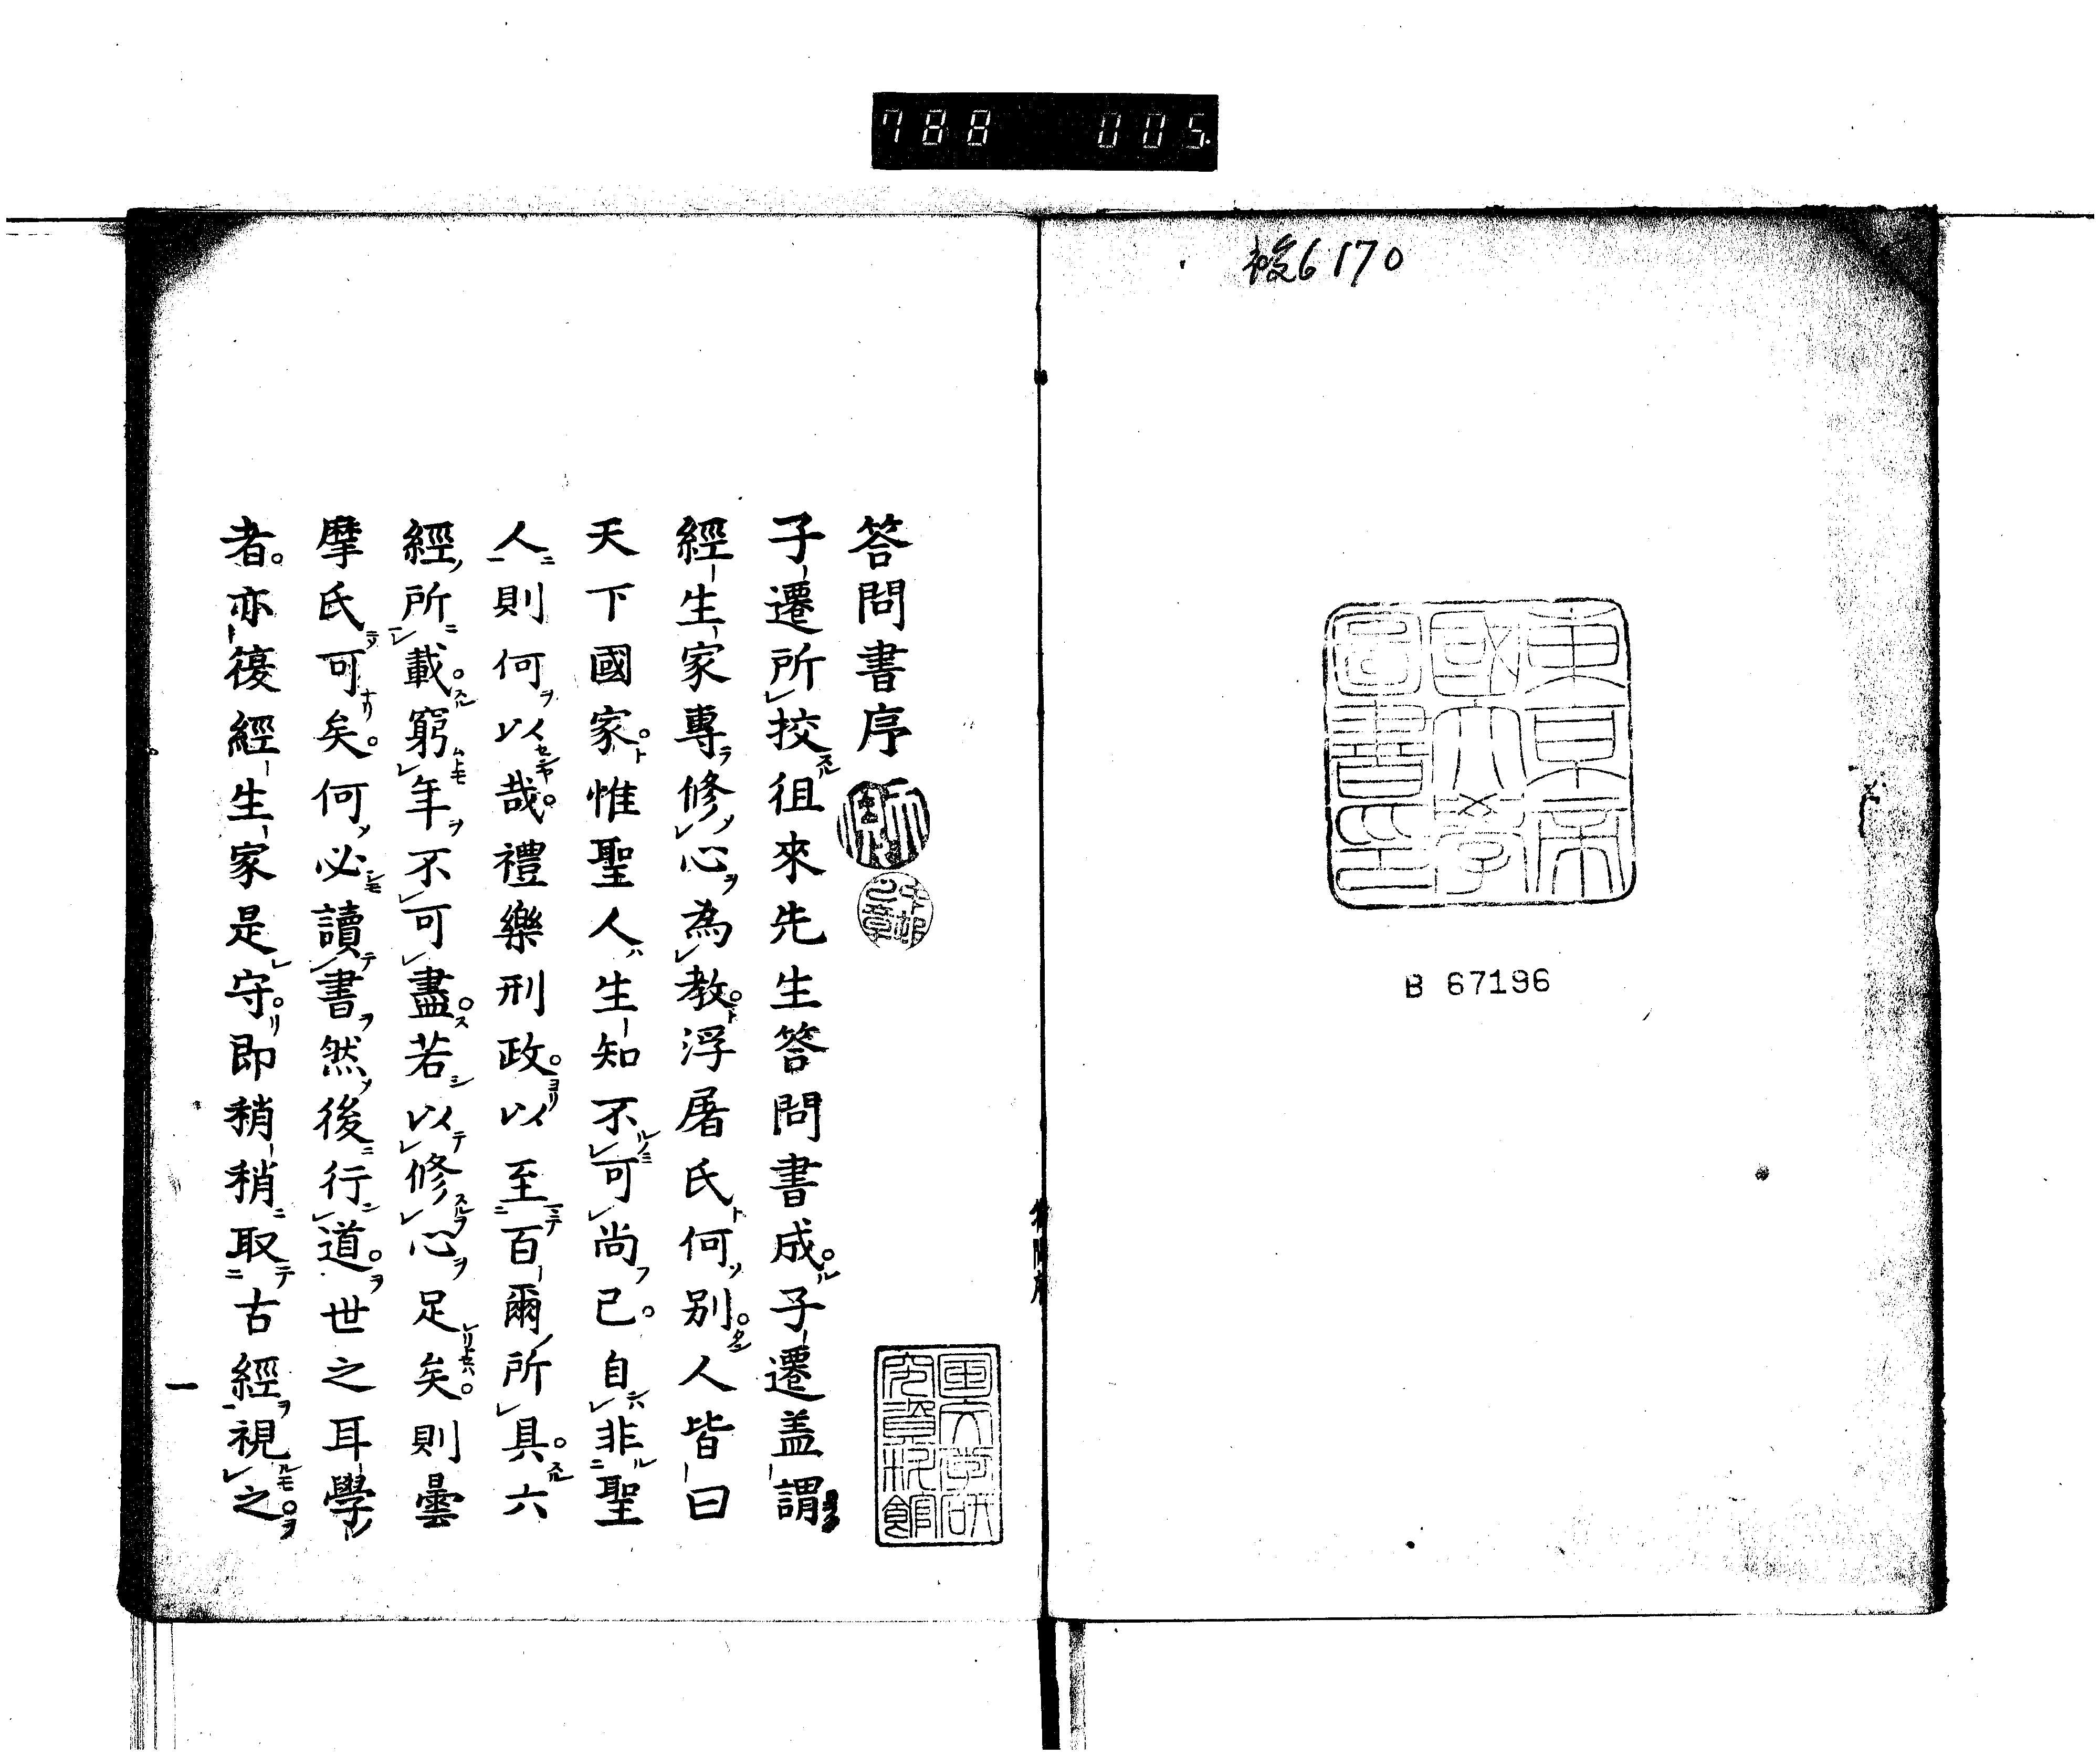 788 005
複6170
東京帝
國大學
圖書印
B 67196
答問書序
子遷所挍徂來先生答問書成子遷盖謂
經生家專修心為教浮屠氏何別人皆曰
天下國家惟聖人生知不可尚已自非聖
人則何以哉禮樂刑政以至百爾所具六
經所載窮年不可盡若以修心足矣則曇
摩氏可矣何必讀書然後行道世之耳學
者亦復經生家是守即稍稍取古經視之
國文學研
究資料館
一